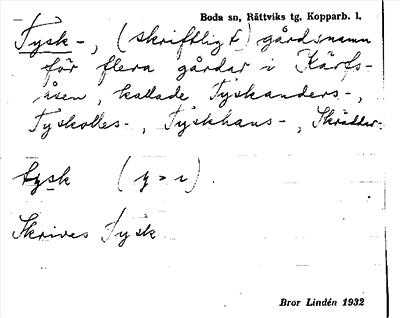 Boda sn, Rättviks tg, Kopparb. l.
Tysk-, (skriftligt) gårdsnamn
för flera gårdar i Kärfs-
åsen, kallade Tyskanders-,
Tyskolles-, Tyskhans-, Skräddar-
tysk (y = ɩ)
Skrives Tysk
Bror Lindén 1932